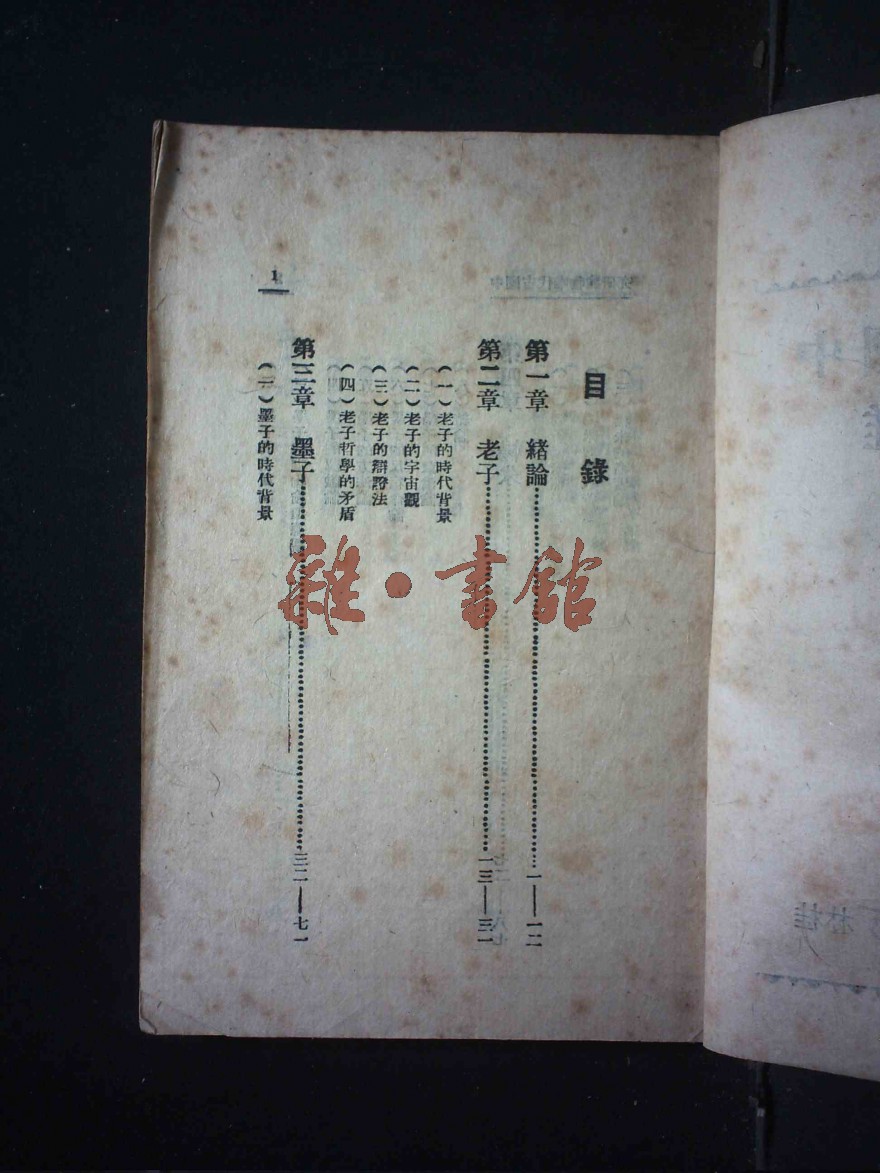 目錄
第一章 緒論……一——一二
第二章 老子……一三——三一
(一)老子的時代背景
(二)老子的宇宙觀
(三)老子的辯證法
(四)老子哲學的矛盾
第三章 墨子……三二——七一
(一)墨子的時代背景
1
雜·書館